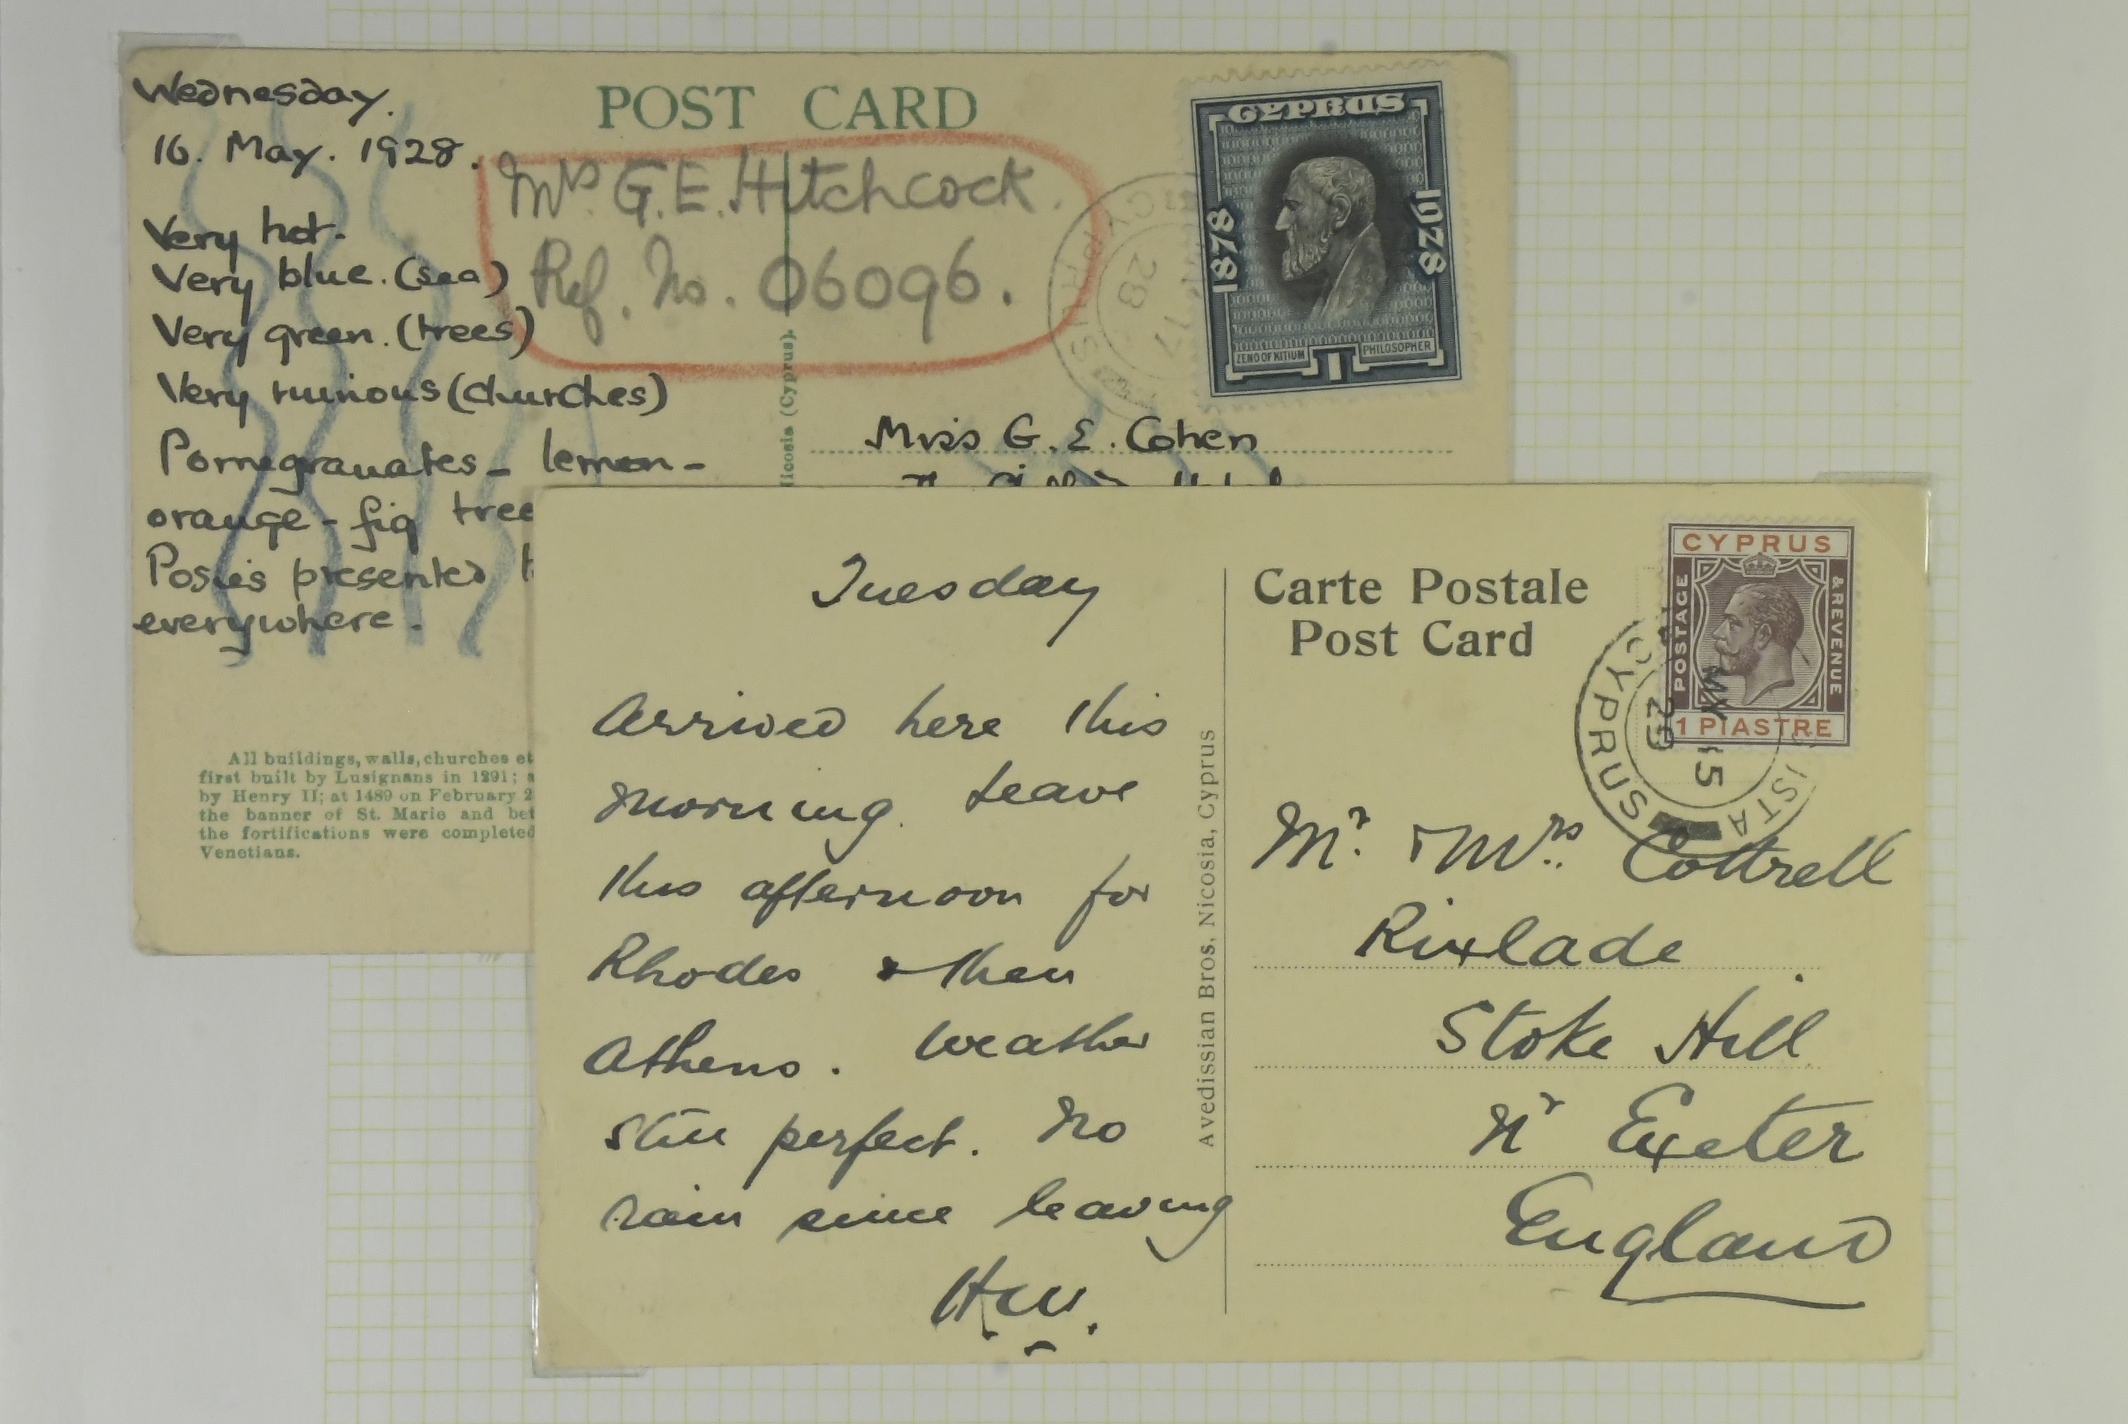 Wednesday.
16. May. 1928.
Very hot.
Very blue. (sea)
Very green. (trees)
Very ruinous (churches)
Pomegranates - lemon -
orange - fig tree
Posies presented
everywhere.
All buildings, walls, churches et
first built by Lusignans in 1291; a
by Henry II; at 1489 on February 2
the banner of St. Marie and bet
the fortifications were completed
Venetians.
POST CARD
Mrs. G.E. Hitchcock.
Ref. No. 06096.
Nicosia (Cyprus).
CYPRUS
17
28
CYPRUS
1878
1928
ZENO OF KITIUM
PHILOSOPHER
1
Miss G. E. Cohen
Hotel
Tuesday
Arrived here this
morning. Leave
this afternoon for
Rhodes & then
Athens. Weather
still perfect. No
rain since leaving
H.W.
Avedissian Bros, Nicosia, Cyprus
Carte Postale
Post Card
CYPRUS
POSTAGE
& REVENUE
1 PIASTRE
CYPRUS
MY 15
29
Mr. & Mrs. Cottrell
Rixlade
Stoke Hill
Nr Exeter
England